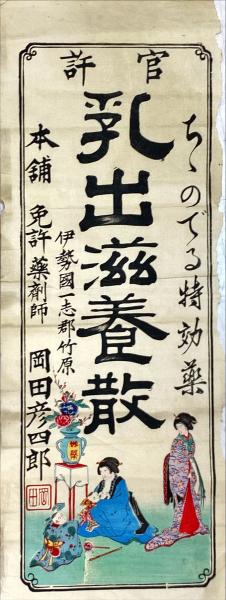 官許
ちゝのでる特効薬
乳出滋養散
伊勢國一志郡竹原
本舗 免許薬剤師 岡田彦四郎
岡田